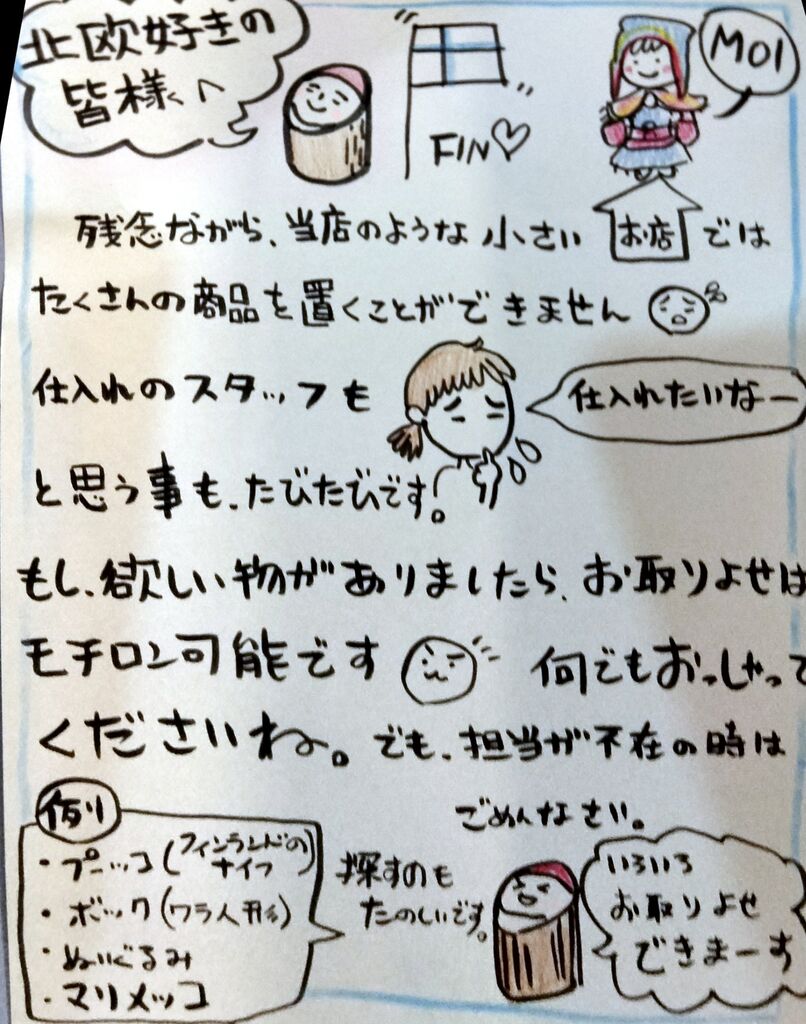 北欧好きの
皆様へ
FIN♡
MOI
残念ながら、当店のような小さいお店では
たくさんの商品を置くことができません
仕入れのスタッフも
仕入れたいなー
と思う事も、たびたびです。
もし、欲しい物がありましたら、お取りよせは
モチロン可能です 何でもおっしゃって
くださいね。でも、担当が不在の時は
ごめんなさい。
例
・プーッコ(フィンランドの
ナイフ)
・ボック(ワラ人形)
・ぬいぐるみ
・マリメッコ
探すのも
たのしいです。
いろいろ
お取りよせ
できまーす